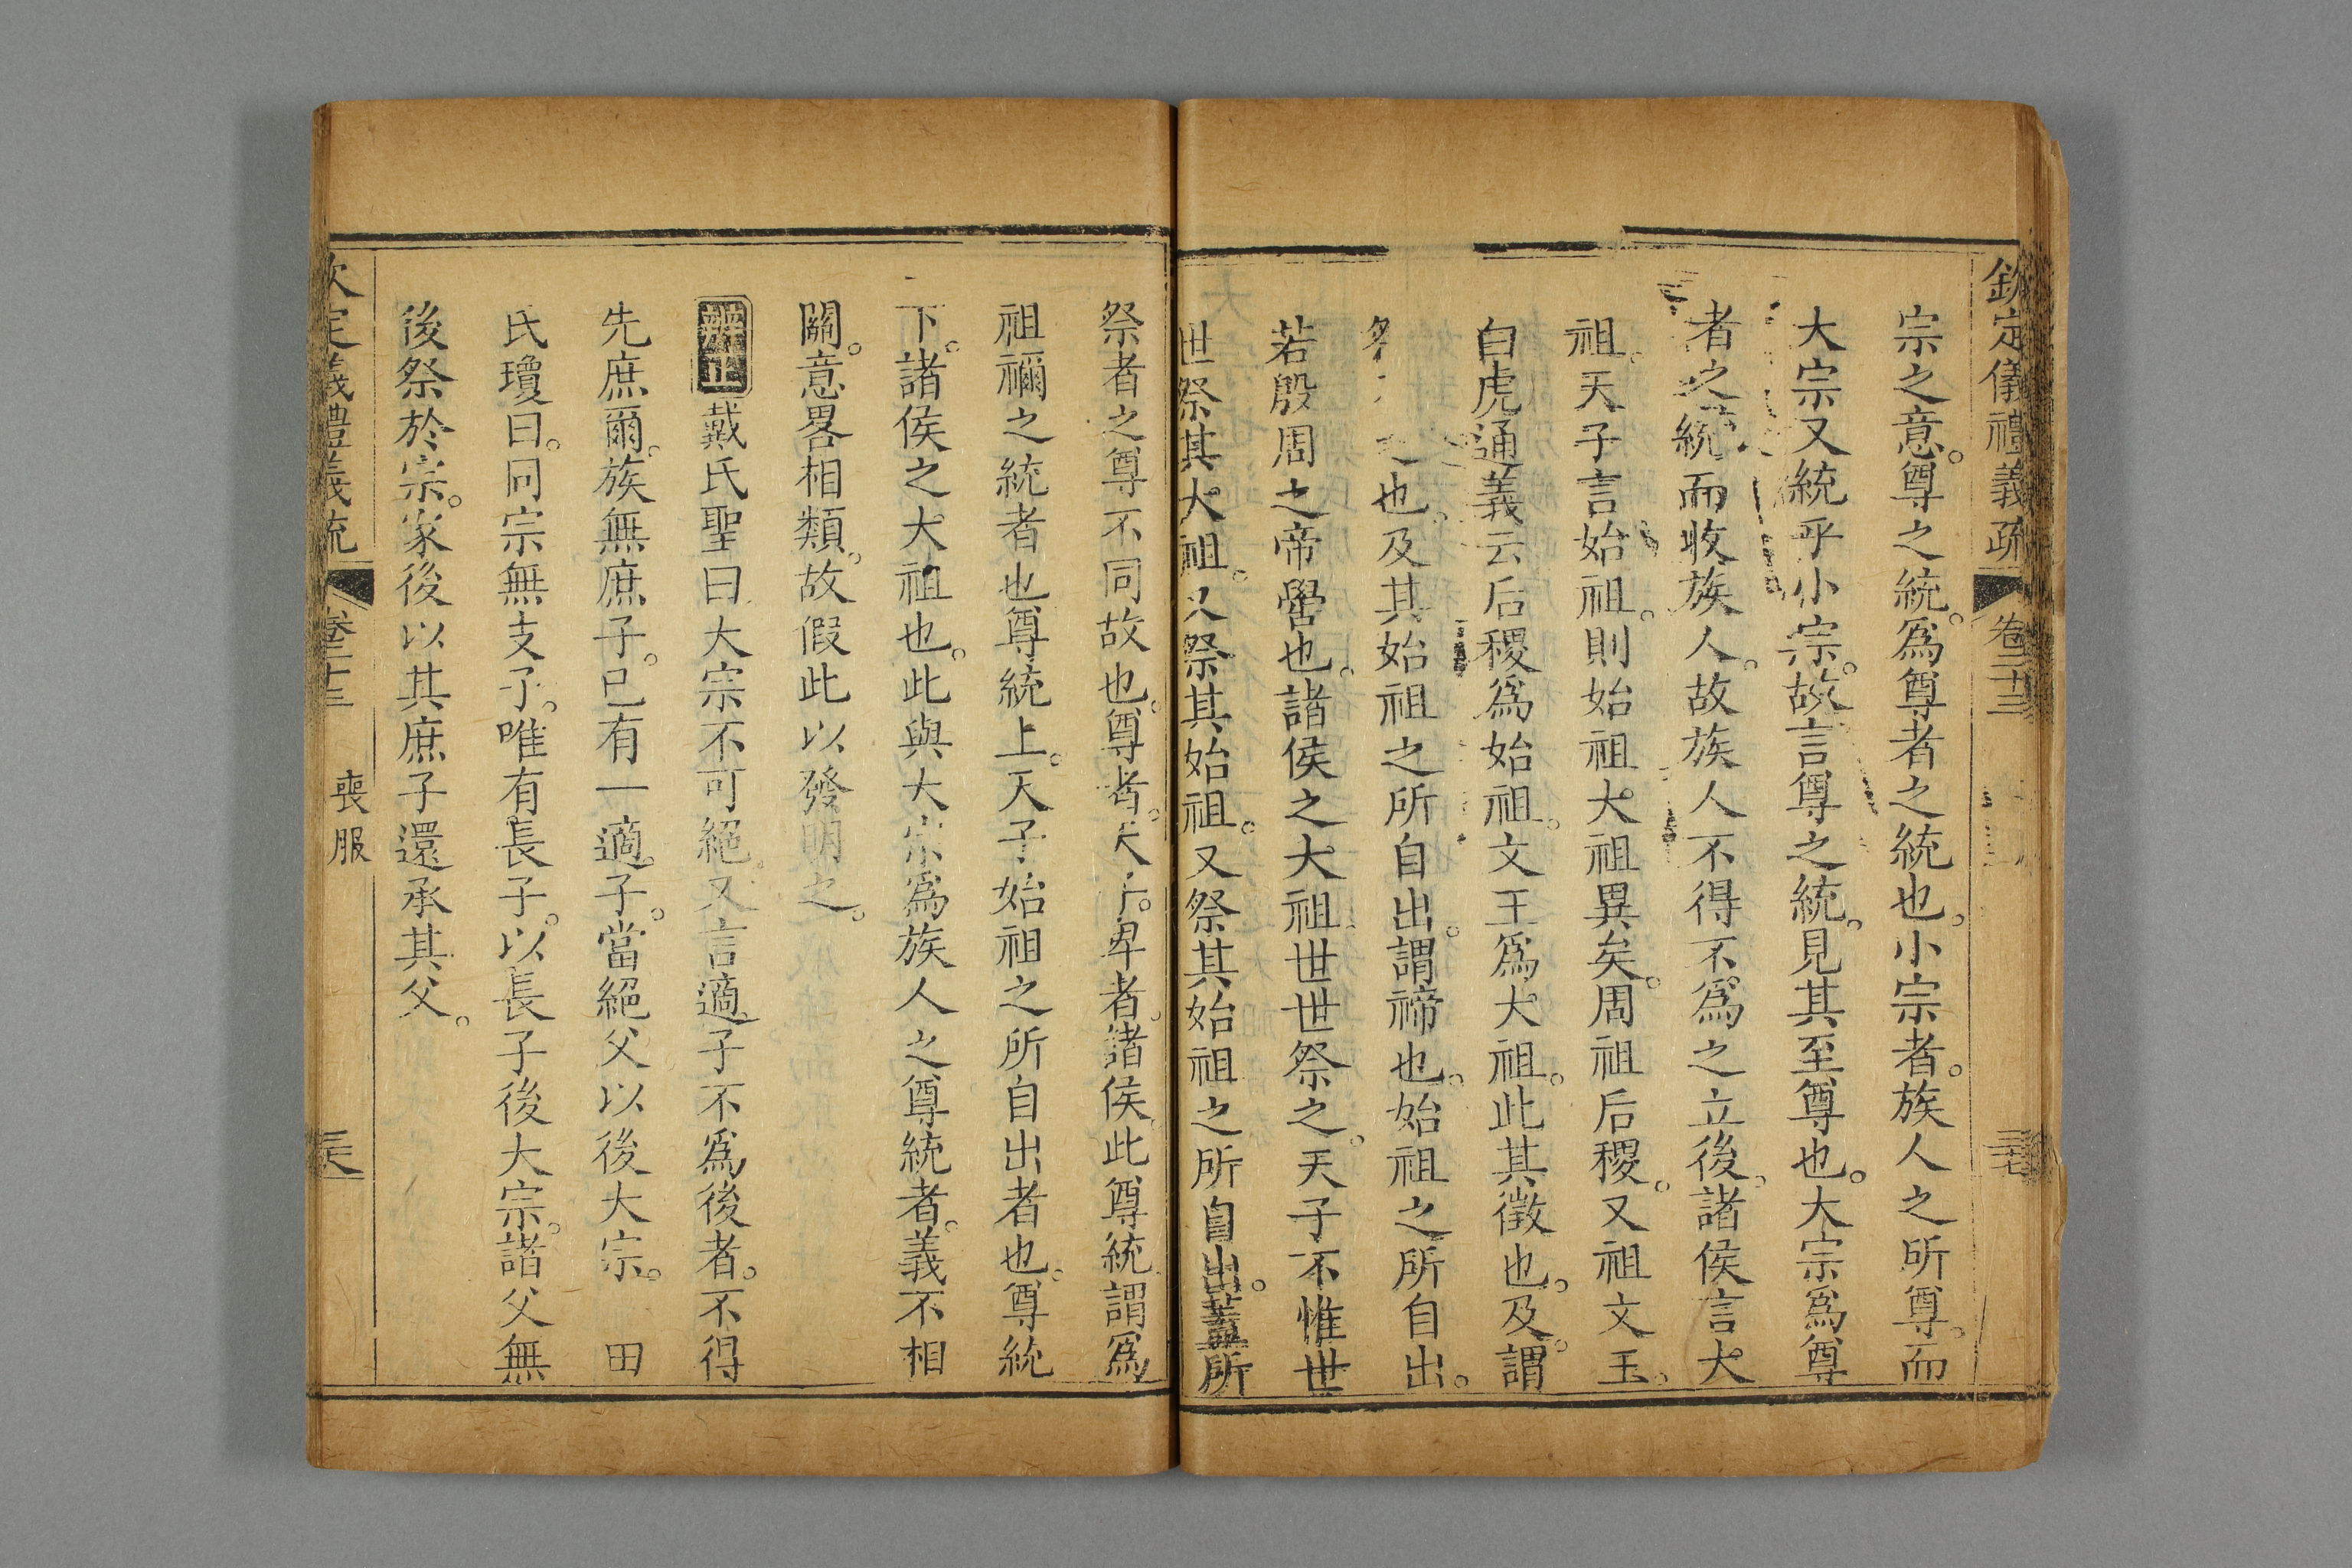 欽定儀禮義疏 卷二十三
宗之意。尊之統。爲尊者之統也。小宗者。族人之所尊。而
大宗又統乎小宗。故言尊之統。見其至尊也。大宗爲尊
者之統。而收族人。故族人不得不爲之立後。諸侯言大
祖。天子言始祖。則始祖大祖異矣。周祖后稷。又祖文王。
白虎通義云后稷爲始祖。文王爲大祖。此其徵也。及。謂
也。及其始祖之所自出。謂禘也。始祖之所自出。
若殷周之帝嚳也。諸侯之大祖。世世祭之。天子不惟世
世祭其大祖。又祭其始祖。又祭其始祖之所自出。蓋所
祭者之尊不同故也。尊者。天子。卑者。諸侯。此尊統。謂爲
祖禰之統者也尊統上。天子始祖之所自出者也。尊統
下。諸侯之大祖也。此與大宗爲族人之尊統者。義不相
關。意畧相類。故假此以發明之。
辨正 戴氏聖曰大宗不可絕。又言適子不爲後者。不得
先庶爾。族無庶子。已有一適子。當絕父以後大宗。 田
氏瓊曰。同宗無支子。唯有長子。以長子後大宗。諸父無
後祭於宗。家後以其庶子還承其父。
喪服